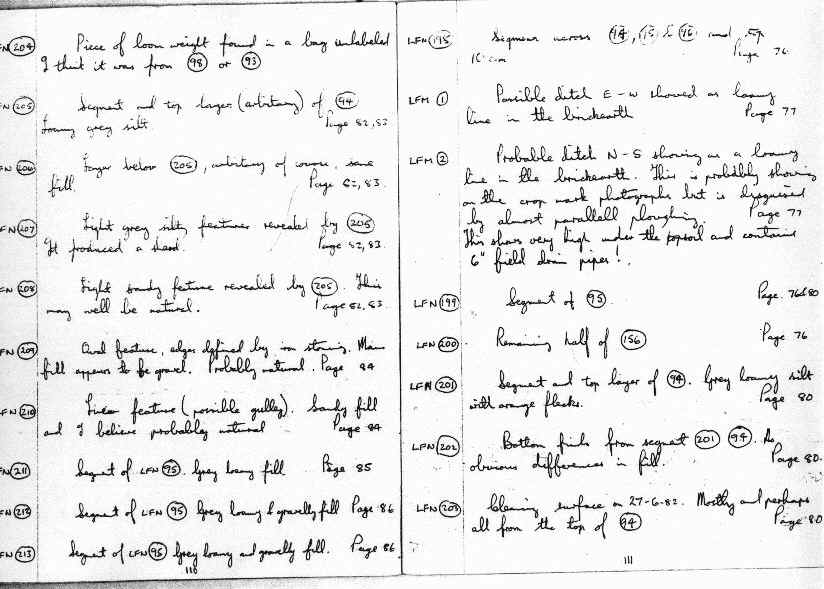 LFN 204 Piece of loom weight found in a bag unlabeled
I think it was from 98 or 93
LFN 205 Segment and top layer (arbitrary) of 94
Loamy grey silt Page 82, 83
LFN 206 Layer below 205, arbitrary of course, same
fill. Page 82, 83.
LFN 207 Light grey silty features revealed by 205
It produced a sherd. Page 82, 83.
LFN 208 Light sandy feature revealed by 205. This
may well be natural. Page 82, 83.
LFN 209 Oval feature, edges defined by iron staining. Main
fill appears to be gravel. Probably natural. Page 84
LFN 210 Linear feature (possible gulley). Sandy fill
and I believe probably natural Page 84
LFN 211 Segment of LFN 95. Grey loamy fill Page 85
LFN 212 Segment of LFN 95 Grey loamy & gravelly fill Page 86
LFN 213 Segment of LFN 95 Grey loamy and gravelly fill. Page 86
110
LFN 198 Segment across 94, 95 & 96 and top
Page 76
LFM 1 Possible ditch E-W showed as loamy
line in the brickearth Page 77
LFM 2 Probable ditch N-S showing as a loamy
line in the brickearth. This is probably showing
on the crop mark photographs but is disguised
by almost parallell ploughing. Page 77
This shows very high under the topsoil and contains
6" field drain pipes!.
LFN 199 Segment of 95. Page 76&80
LFN 200 Remaining half of 156 Page 76
LFN 201 Segment and top layer of 94. Grey loamy silt
with orange flecks. Page 80
LFN 202 Bottom finds from segment 201 94. No
obvious differences in fill. Page 80.
LFN 203 Cleaning surface on 27-6-82. Mostly and perhaps
all from the top of 94 Page 80
111